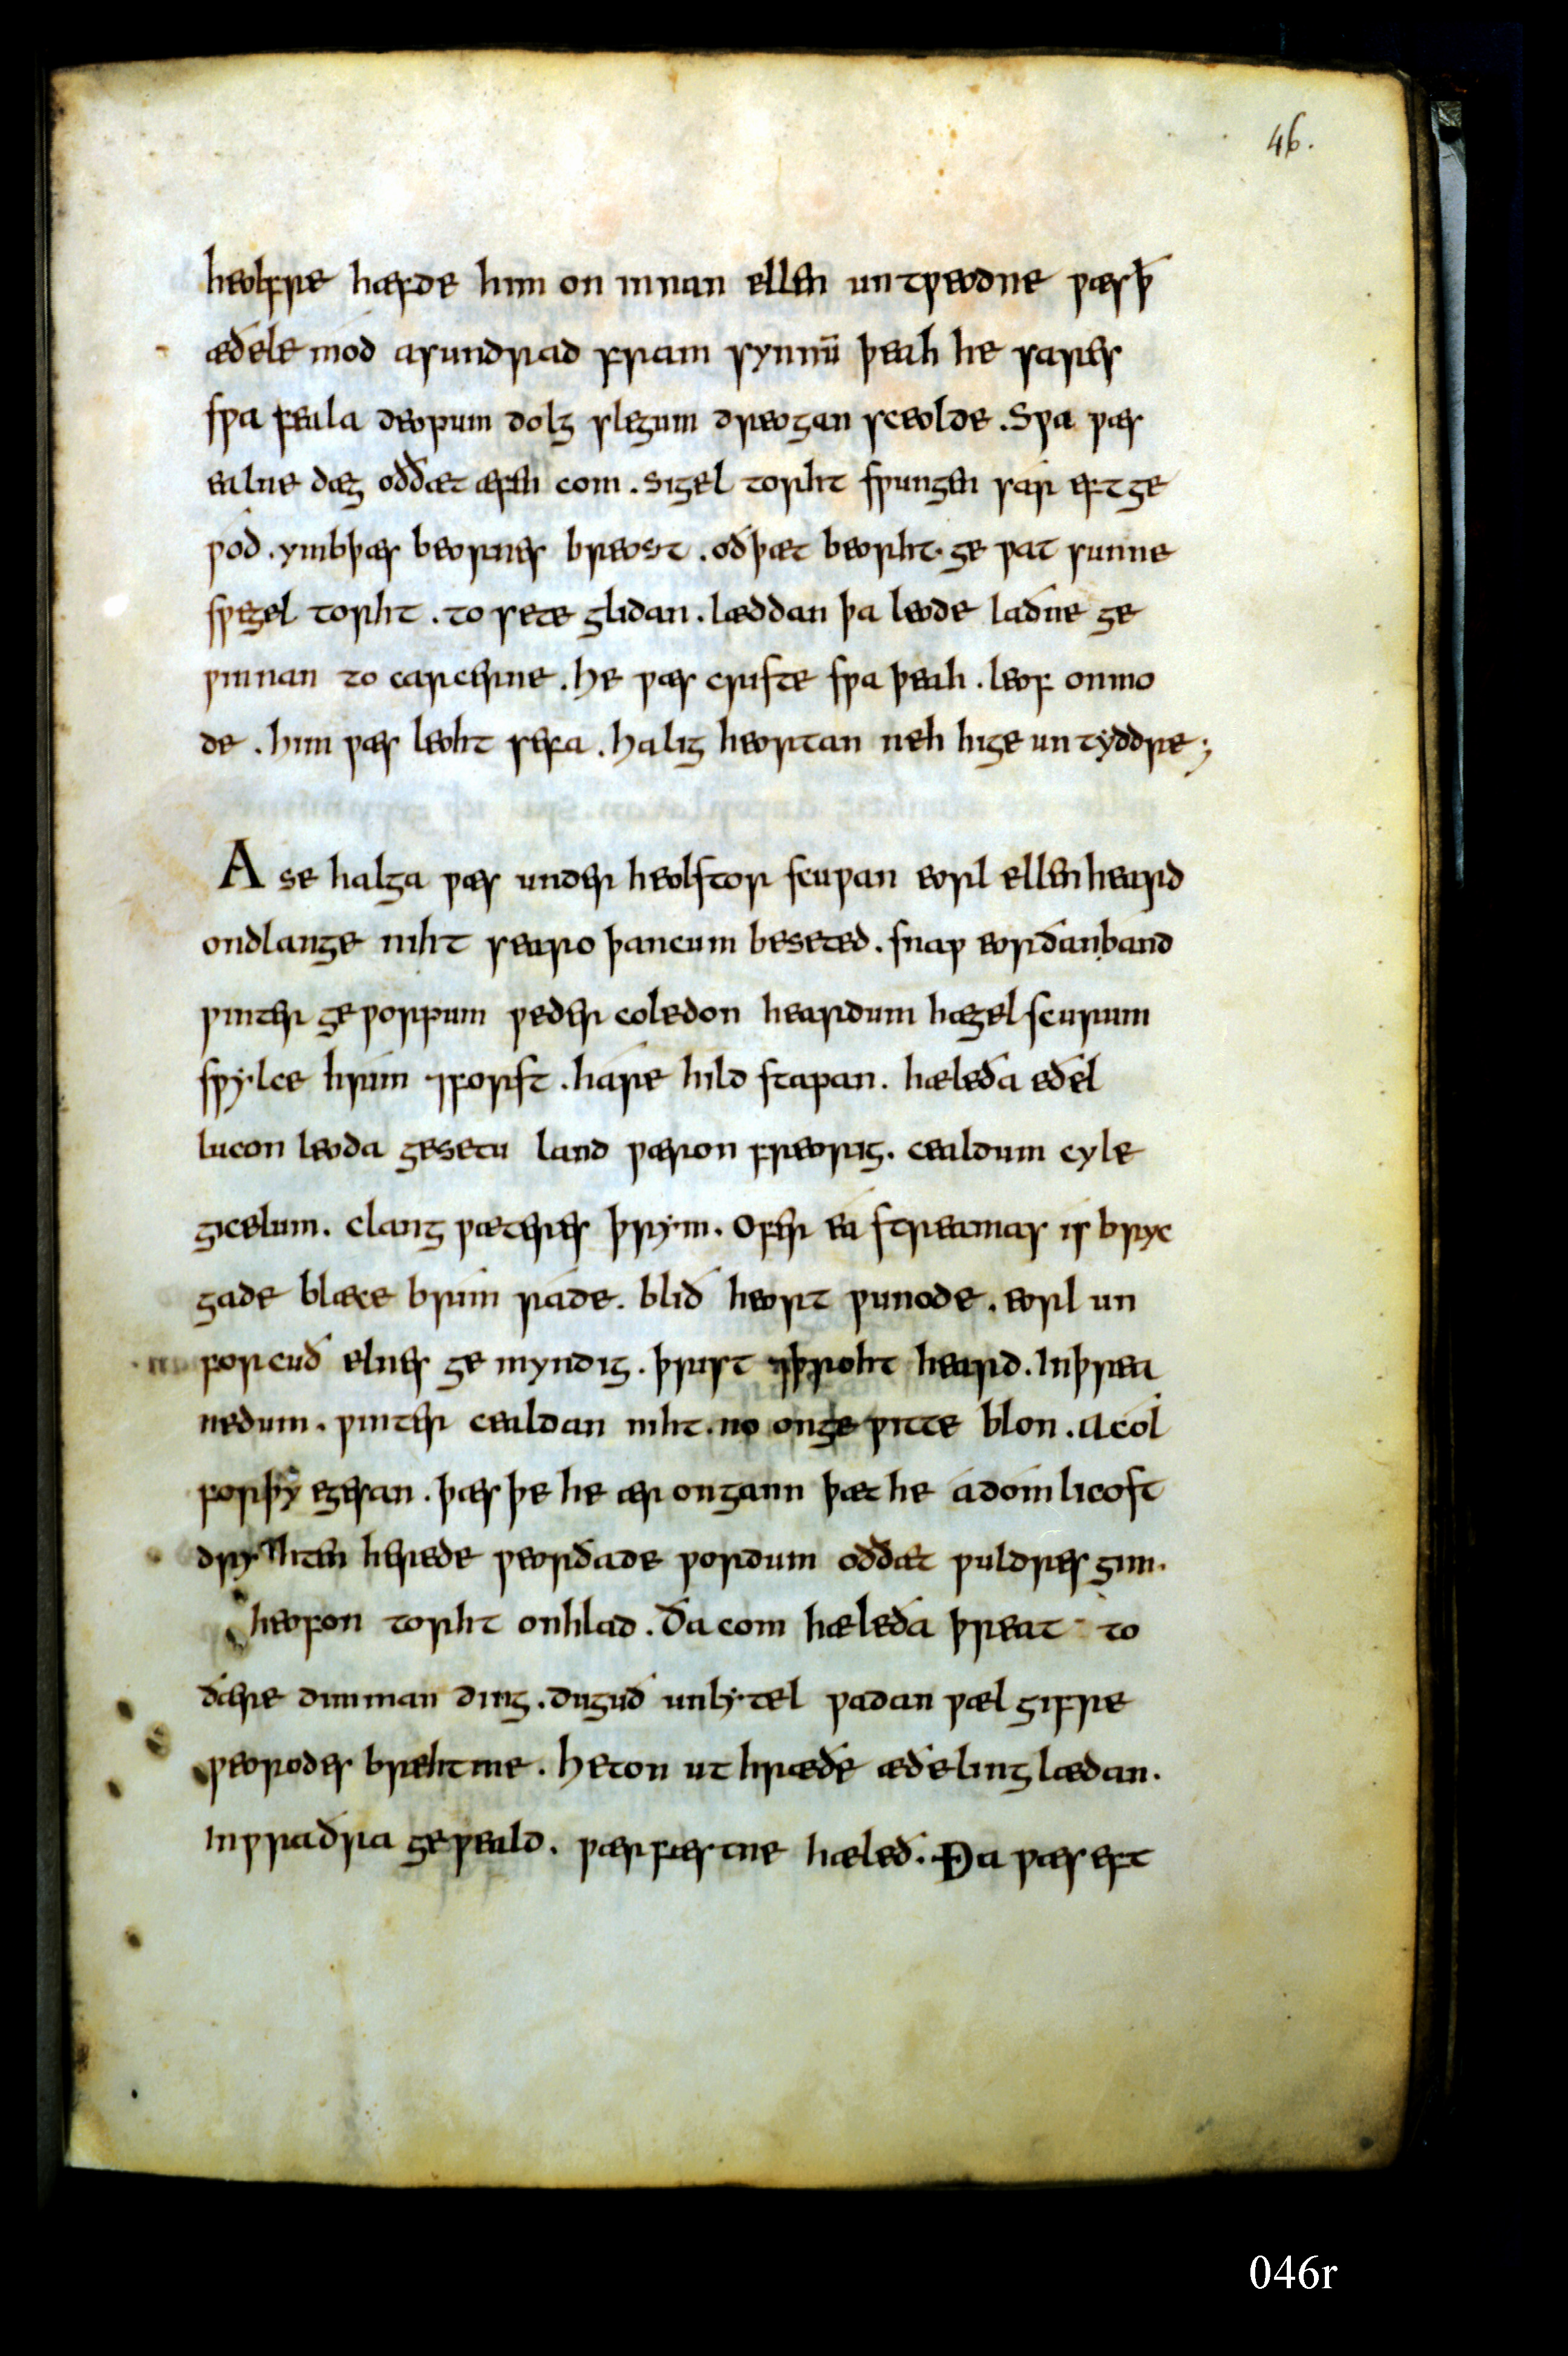 46.
heolfre hæfde him on innan ellen untƿeodne ƿæs ꝥ
æðele mód asundrad fram synnū þeah he sares
sƿa feala deopum dolg slegum dreogan sceolde. Sƿa ƿæs
ealne dæg oððæt æfen com. sigel torht sƿungen sár eft ge
ƿód. ymb þæs beornes breost. oð þæt beorht ge ƿat sunne
sƿegel torht. to sete glidan. læddan þa leode laðne ge
ƿinnan to carcerne. he ƿæs criste sƿa þeah. leof on mo
de. him ƿæs leoht sefa. halig heortan neh hige untyddre;
A se halga ƿæs under heolstor scuƿan eorl ellenheard
ondlange niht searo þancum beseted. snaƿ eorðan band
ƿinter geƿorpum ƿeder coledon heardum hægel scurum
sƿylce hrím ⁊forst. háre hild stapan. hæleða eðel
lucon leoda gesetu land ƿæron freorig. cealdum cyle
gicelum. clang ƿæteres þrym. ofer eá streamas is bryc
gade blæce brim ráde. blið heort ƿunode. eorl un
forcuð elnes ge myndig. þrist ⁊þroht heard. In þrea
nedum. ƿinter cealdan niht. no on geƿitte blon. acól
for þy egesan. þæs þe he ær ongann þæt he á domlicost
dryhten herede ƿeorðade ƿordum oððæt ƿuldres gim.
heofon torht onhlad. Ða com hæleða þreat to
ðære dimman ding. duguð unlytel ƿadan ƿæl gifre
ƿeorodes brehtme. heton ut hræðe æðeling lædan.
In ƿraðra geƿeald. ƿærfæstne hæleð. Ða ƿæs eft
046r